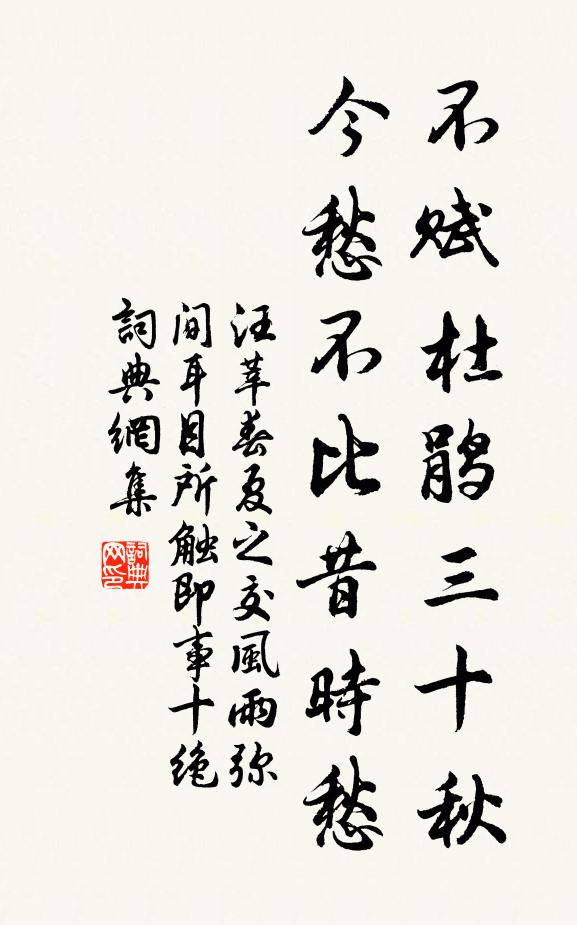 不赋杜鹃三十秋
今愁不比昔時愁
汪莘春夏之交風雨弥
间耳目所触即事十绝
詞典網集
詞典
网印